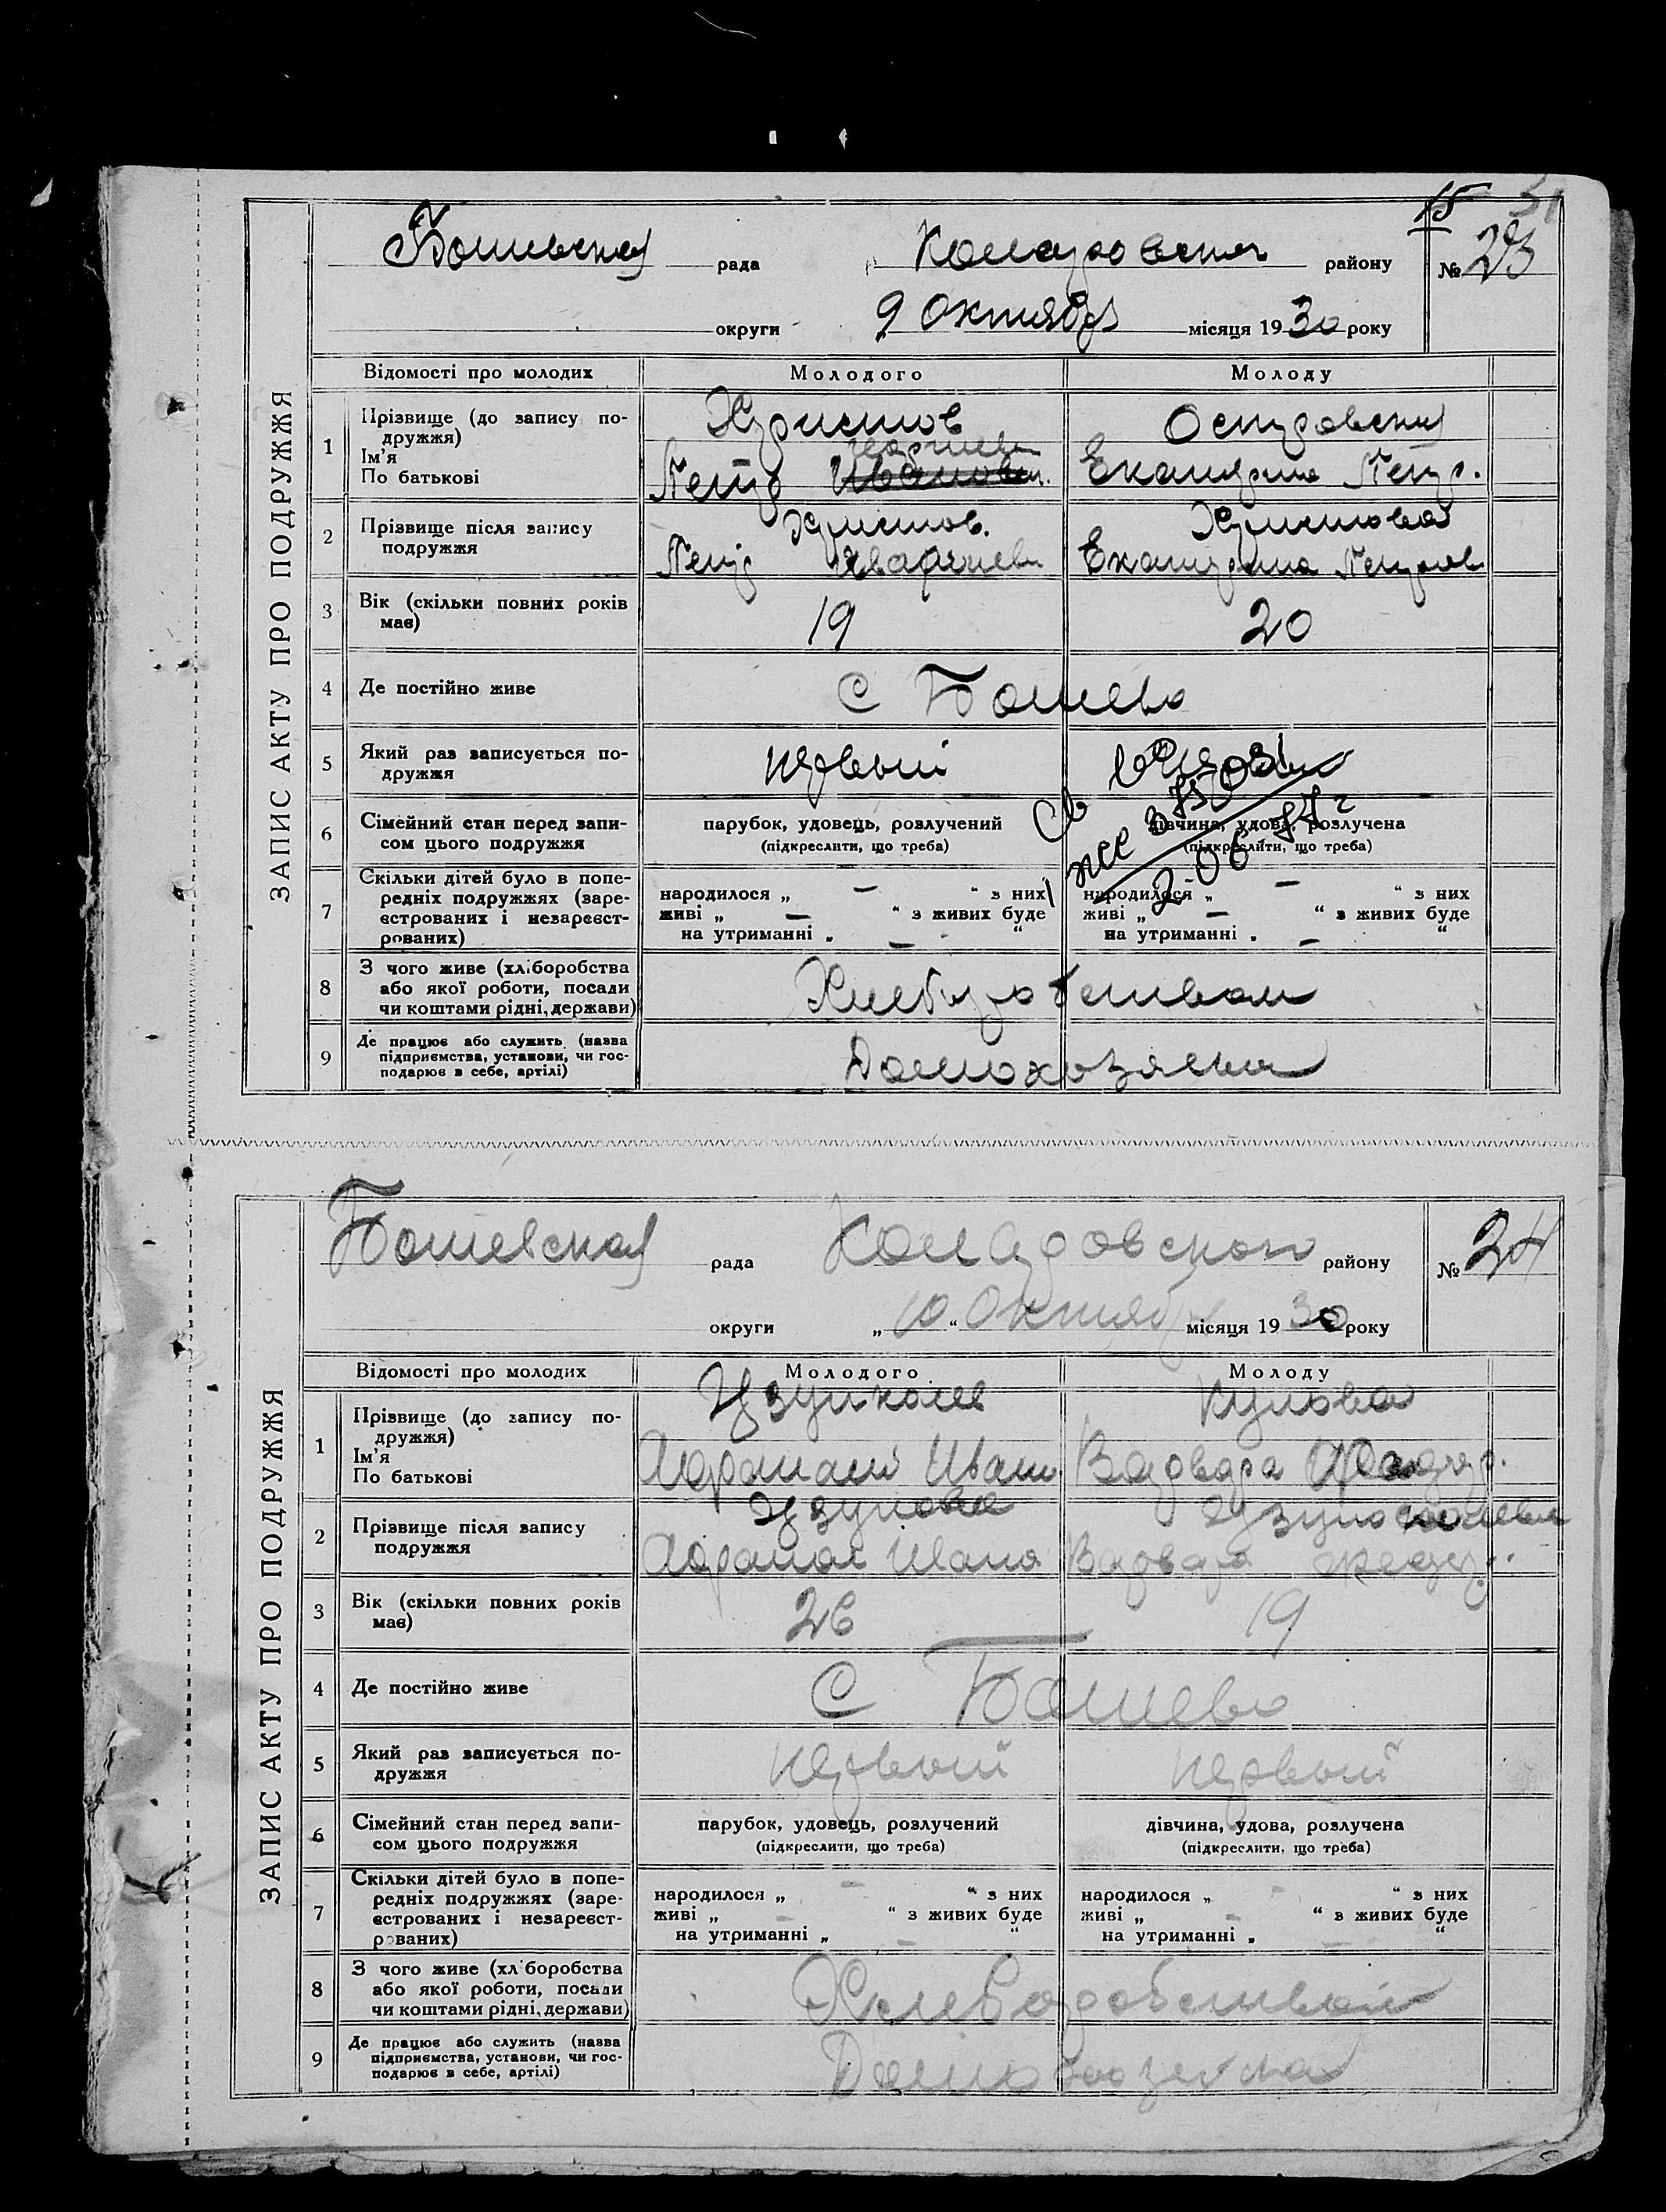 15
Ботевская рада Комаровская району № 23
округи 9 Октября місяця 1930 року
ЗАПИС АКТУ ПРО ПОДРУЖЖЯ
Відомості про молодих Молодого Молоду
1 Прізвище (до запису по-
дружжя)
Ім'я
По батькові
Христов
Петр
Островская
Екатерина Петр.
2 Прізвище після запису
подружжя
Христов.
Петр
Христова
Екатерина Петров
3 Вік (скільки повних років
має)
19 20
4 Де постійно живе С Ботево
5 Який раз записується по-
дружжя
первый
6 Сімейний стан перед запи-
сом цього подружжя
парубок, удовець, розлучений
(підкреслити, що треба)
дівчина, удова, розлучена
(підкреслити, що треба)
7 Скільки дітей було в попе-
редніх подружжях (заре-
єстрованих і незареєст-
рованих)
народилося „ — “ з них
живі „ — “ з живих буде
на утриманні „ — “
народилося „ — “ з них
живі „ — “ з живих буде
на утриманні „ — “
8 З чого живе (хліборобства
або якої роботи, посади
чи коштами рідні, держави)
Хлеборобством
9 Де працює або служить (назва
підприємства, установи, чи гос-
подарює в себе, артілі)
Домохозяева
Ботевская рада Комаровского району № 24
округи „10“ Октября місяця 1930 року
ЗАПИС АКТУ ПРО ПОДРУЖЖЯ
Відомості про молодих Молодого Молоду
1 Прізвище (до запису по-
дружжя)
Ім'я
По батькові
Иван.
Варвара
2 Прізвище після запису
подружжя
Варвара
3 Вік (скільки повних років
має)
26 19
4 Де постійно живе С Ботево
5 Який раз записується по-
дружжя
первый первый
6 Сімейний стан перед запи-
сом цього подружжя
парубок, удовець, розлучений
(підкреслити, що треба)
дівчина, удова, розлучена
(підкреслити, що треба)
7 Скільки дітей було в попе-
редніх подружжях (заре-
єстрованих і незареєст-
рованих)
народилося „ — “ з них
живі „ — “ з живих буде
на утриманні „ — “
народилося „ — “ з них
живі „ — “ з живих буде
на утриманні „ — “
8 З чого живе (хліборобства
або якої роботи, посади
чи коштами рідні, держави)
Хлеборобством
9 Де працює або служить (назва
підприємства, установи, чи гос-
подарює в себе, артілі)